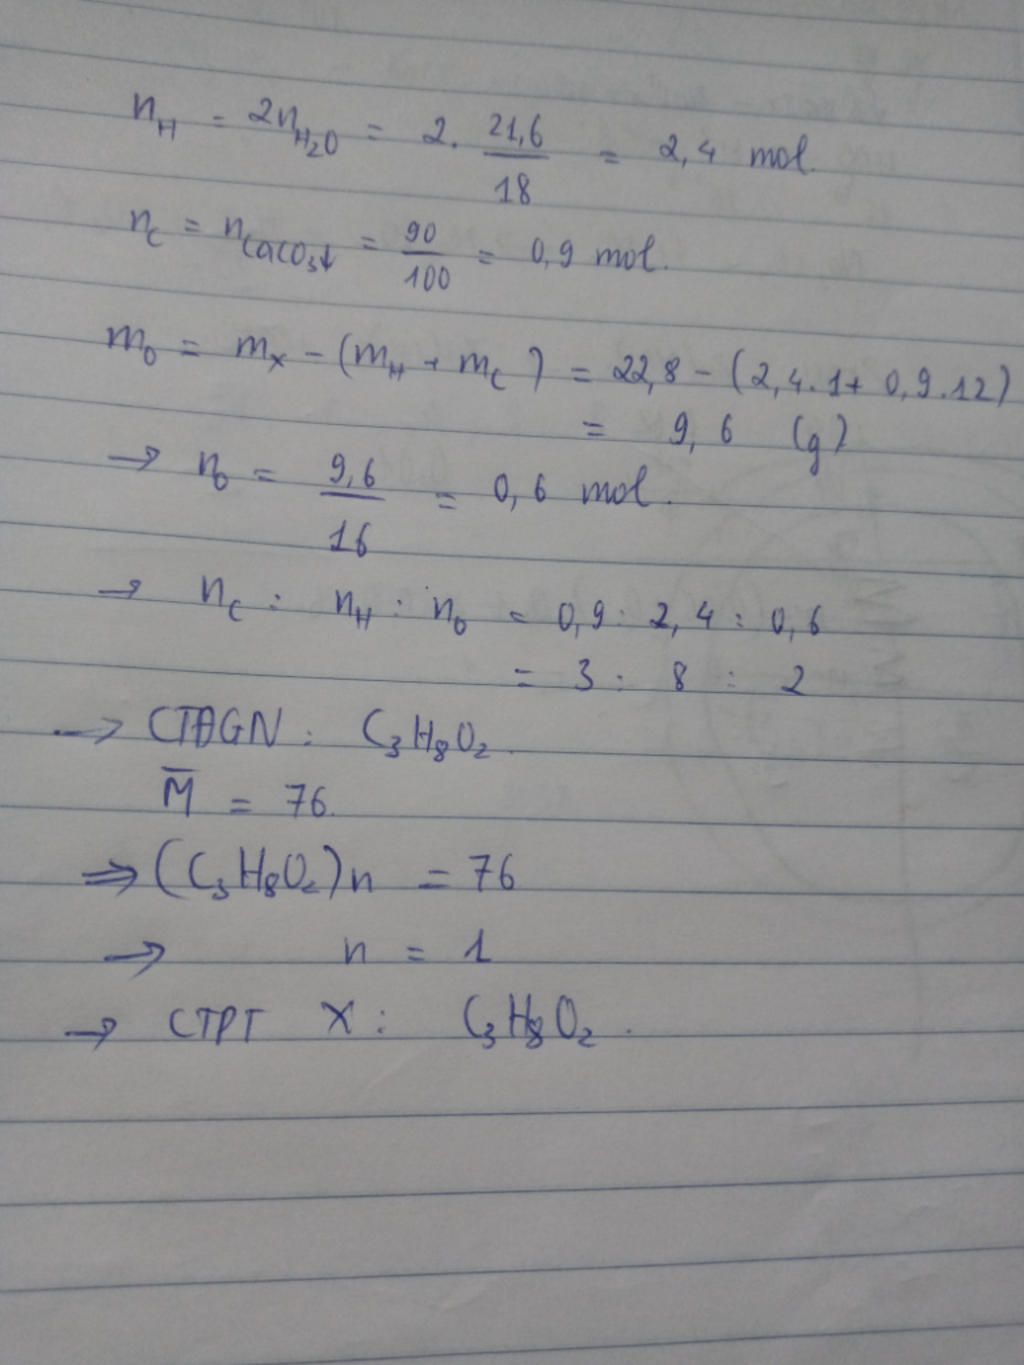 n_H = 2n_H₂O = 2. 21,6/18 = 2,4 mol.
n_C = n_CaCO₃↓ = 90/100 = 0,9 mol.
m_O = m_X - (m_H + m_C) = 22,8 - (2,4.1+ 0,9.12)
= 9,6 (g)
→ n_O = 9,6/16 = 0,6 mol.
→ n_C : n_H : n_O = 0,9 : 2,4 : 0,6
= 3 : 8 : 2
→ CTĐGN : C₃H₈O₂.
M̅ = 76.
⇒ (C₃H₈O₂)n = 76
→ n = 1
→ CTPT X : C₃H₈O₂.